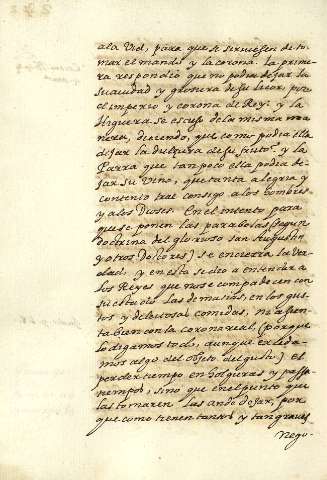 ala Vid, para que se sirviesen de to-
mar el mando y la corona. La prime-
ra respondió que no podia dejar la
suavidad y grosura de su licor, por
el imperio y corona de Rey. y la
Higuera se escusó de la misma ma
nera, diciendo, que como podia ella
dejar la dulçura de su fruto. y la
Parra que tampoco ella podia de-
jar su vino, que tanta alegria y
contento trae consigo a los hombres
y a los Dioses. En el intento para
que se ponen las parabolas (segun
doctrina del glorioso san Augustin
y otros Doctores) se encierra la ver
dad. y en esta se dio a entender a
los Reyes que no se compadecen con
su estado las demasias, en los gus
tos y deleitosas comedas, ni asien
ta bien con la corona real, (porque
lo digamos todo, aunque exceda
mos algo del objeto del gusto) el
perder tiempo en holguras y passa
tiempos, sino que en el punto que
las tomaren las an de dejar, por
que como tienen tantos y tan graves
nego-